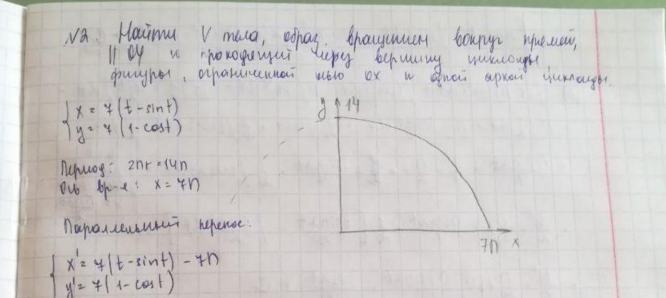 N2 Найти V тела, образ. вращением вокруг прямой,
|| OY и проходящий через вершину циклоиды
фигуры, ограниченной осью ox и одной аркой циклоиды.
{ x = 7(t - sint)
y = 7(1 - cost)
Период: 2πr = 14π
Ось вр-я: x = 7π
Параллельный перенос:
{ x' = 7(t - sint) - 7π
y' = 7(1 - cost)
y 14
7π x